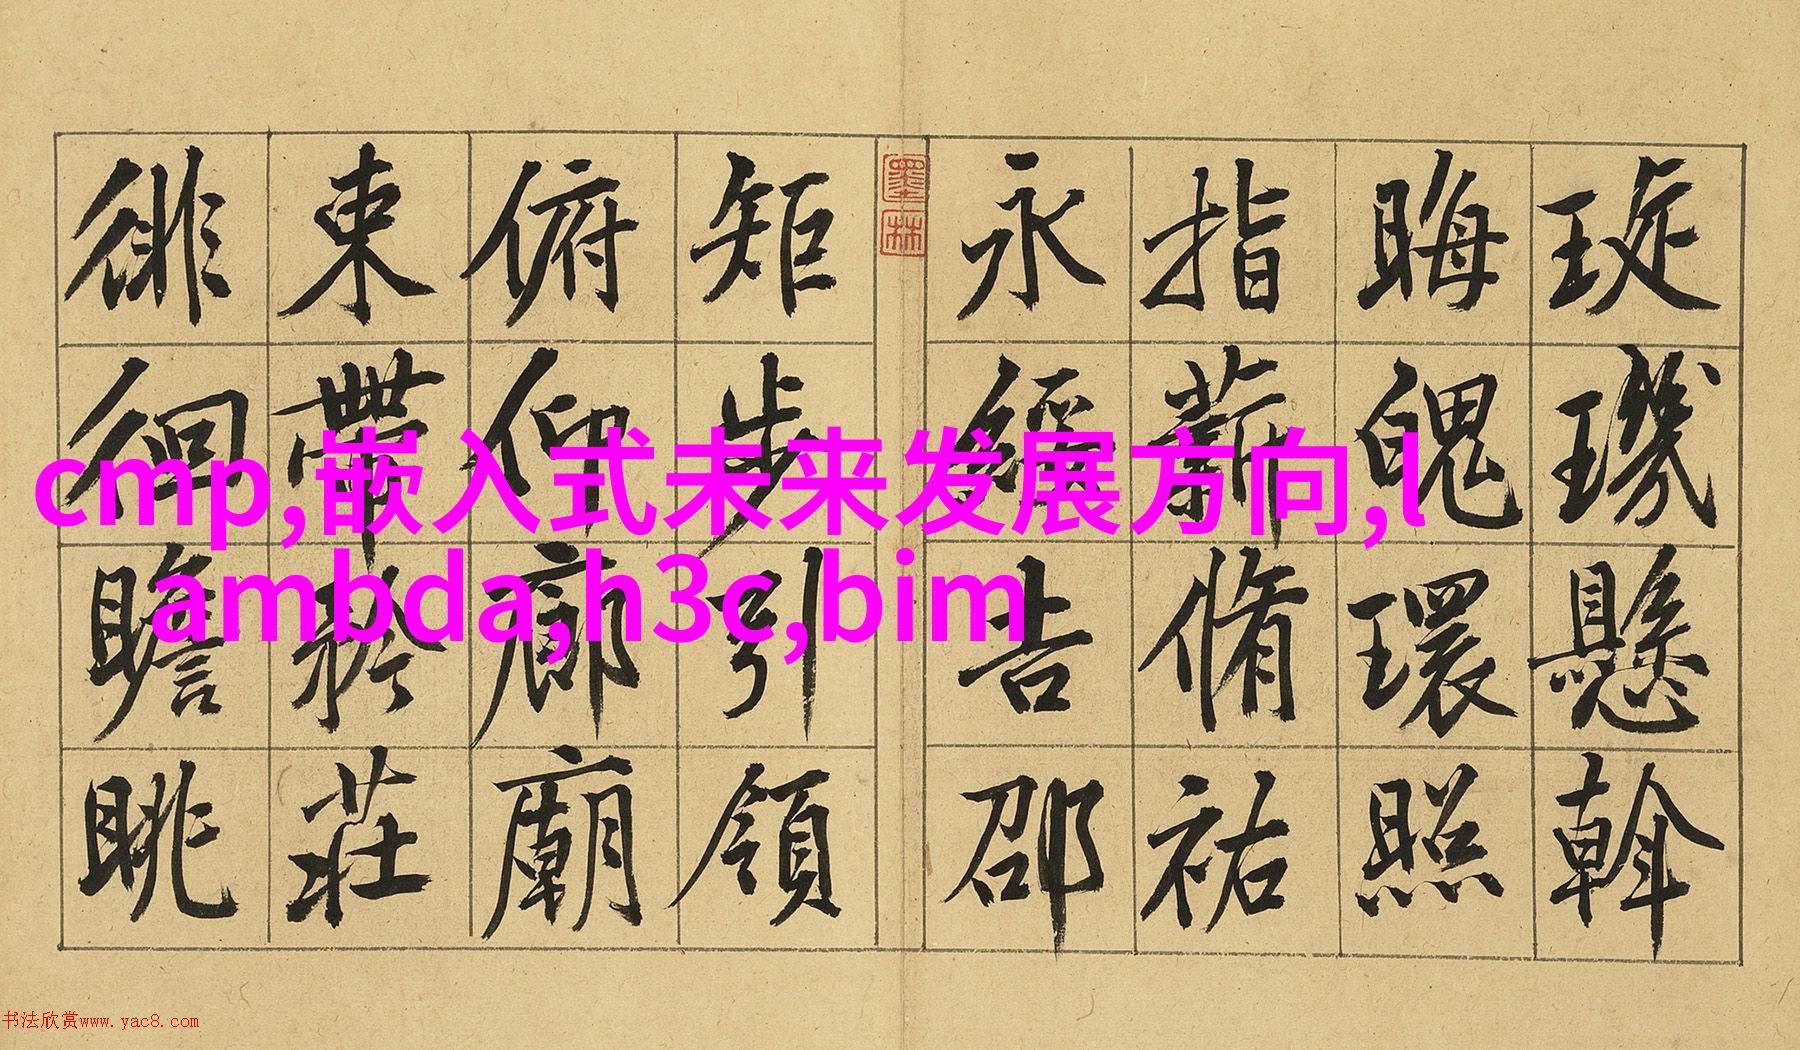 琁璣懸斡
晦魄環照
指薪脩祐
永綏吉邵
墨林
矩步引領
俯仰廊廟
束帶矜莊
徘徊瞻眺
cmp,嵌入式未来发展方向,l
ambda,h3c,bim
书法欣赏www.yac8.com